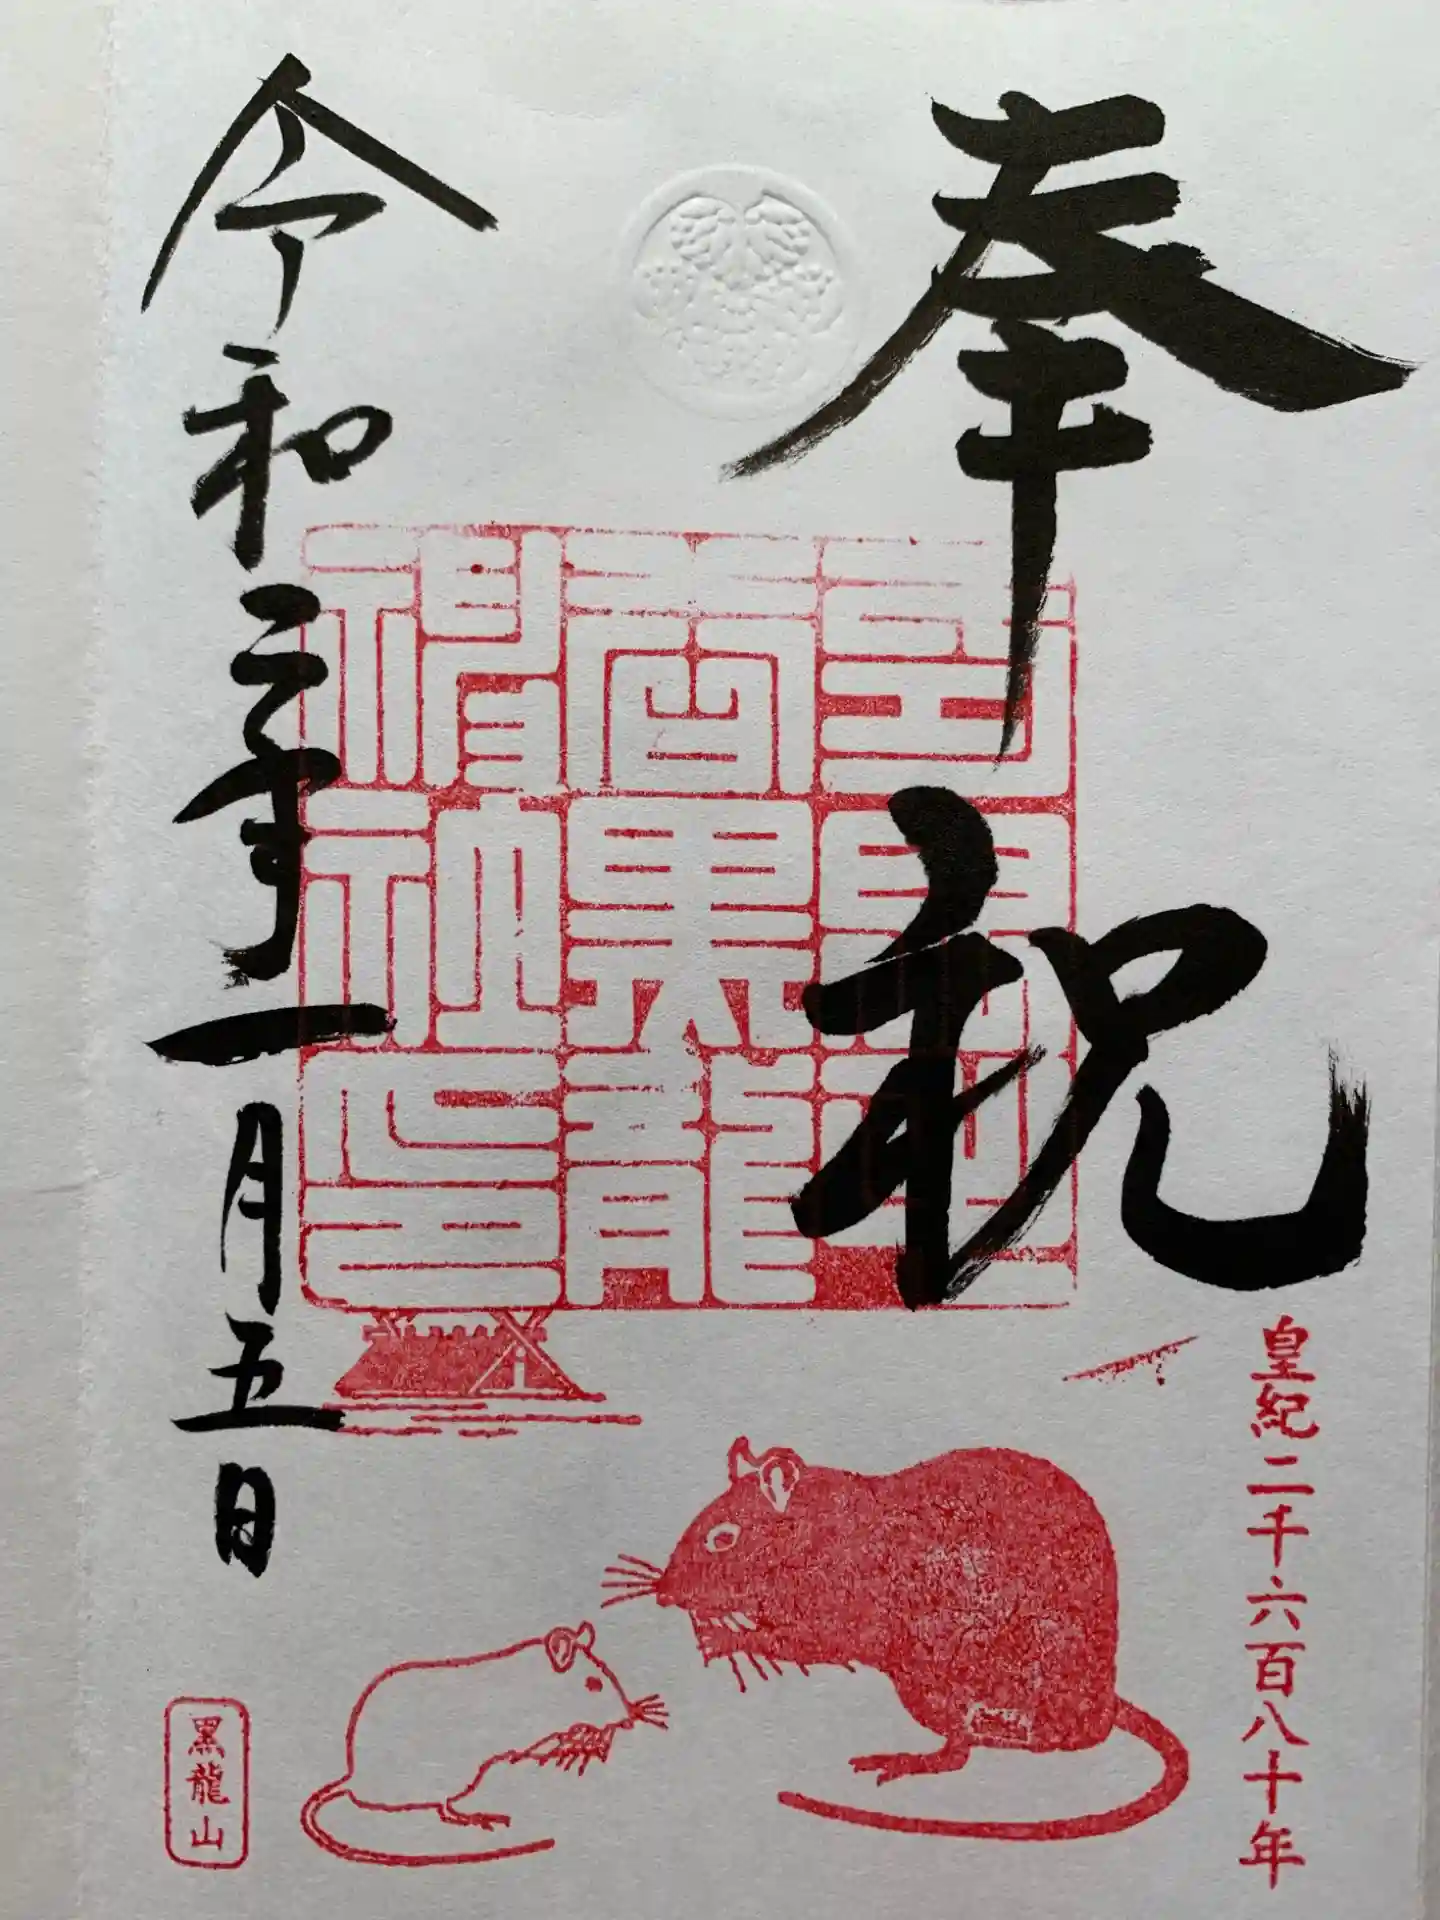 奉祝
皇紀二千六百八十年
黒龍
社印
令和二年一月五日
黒龍山